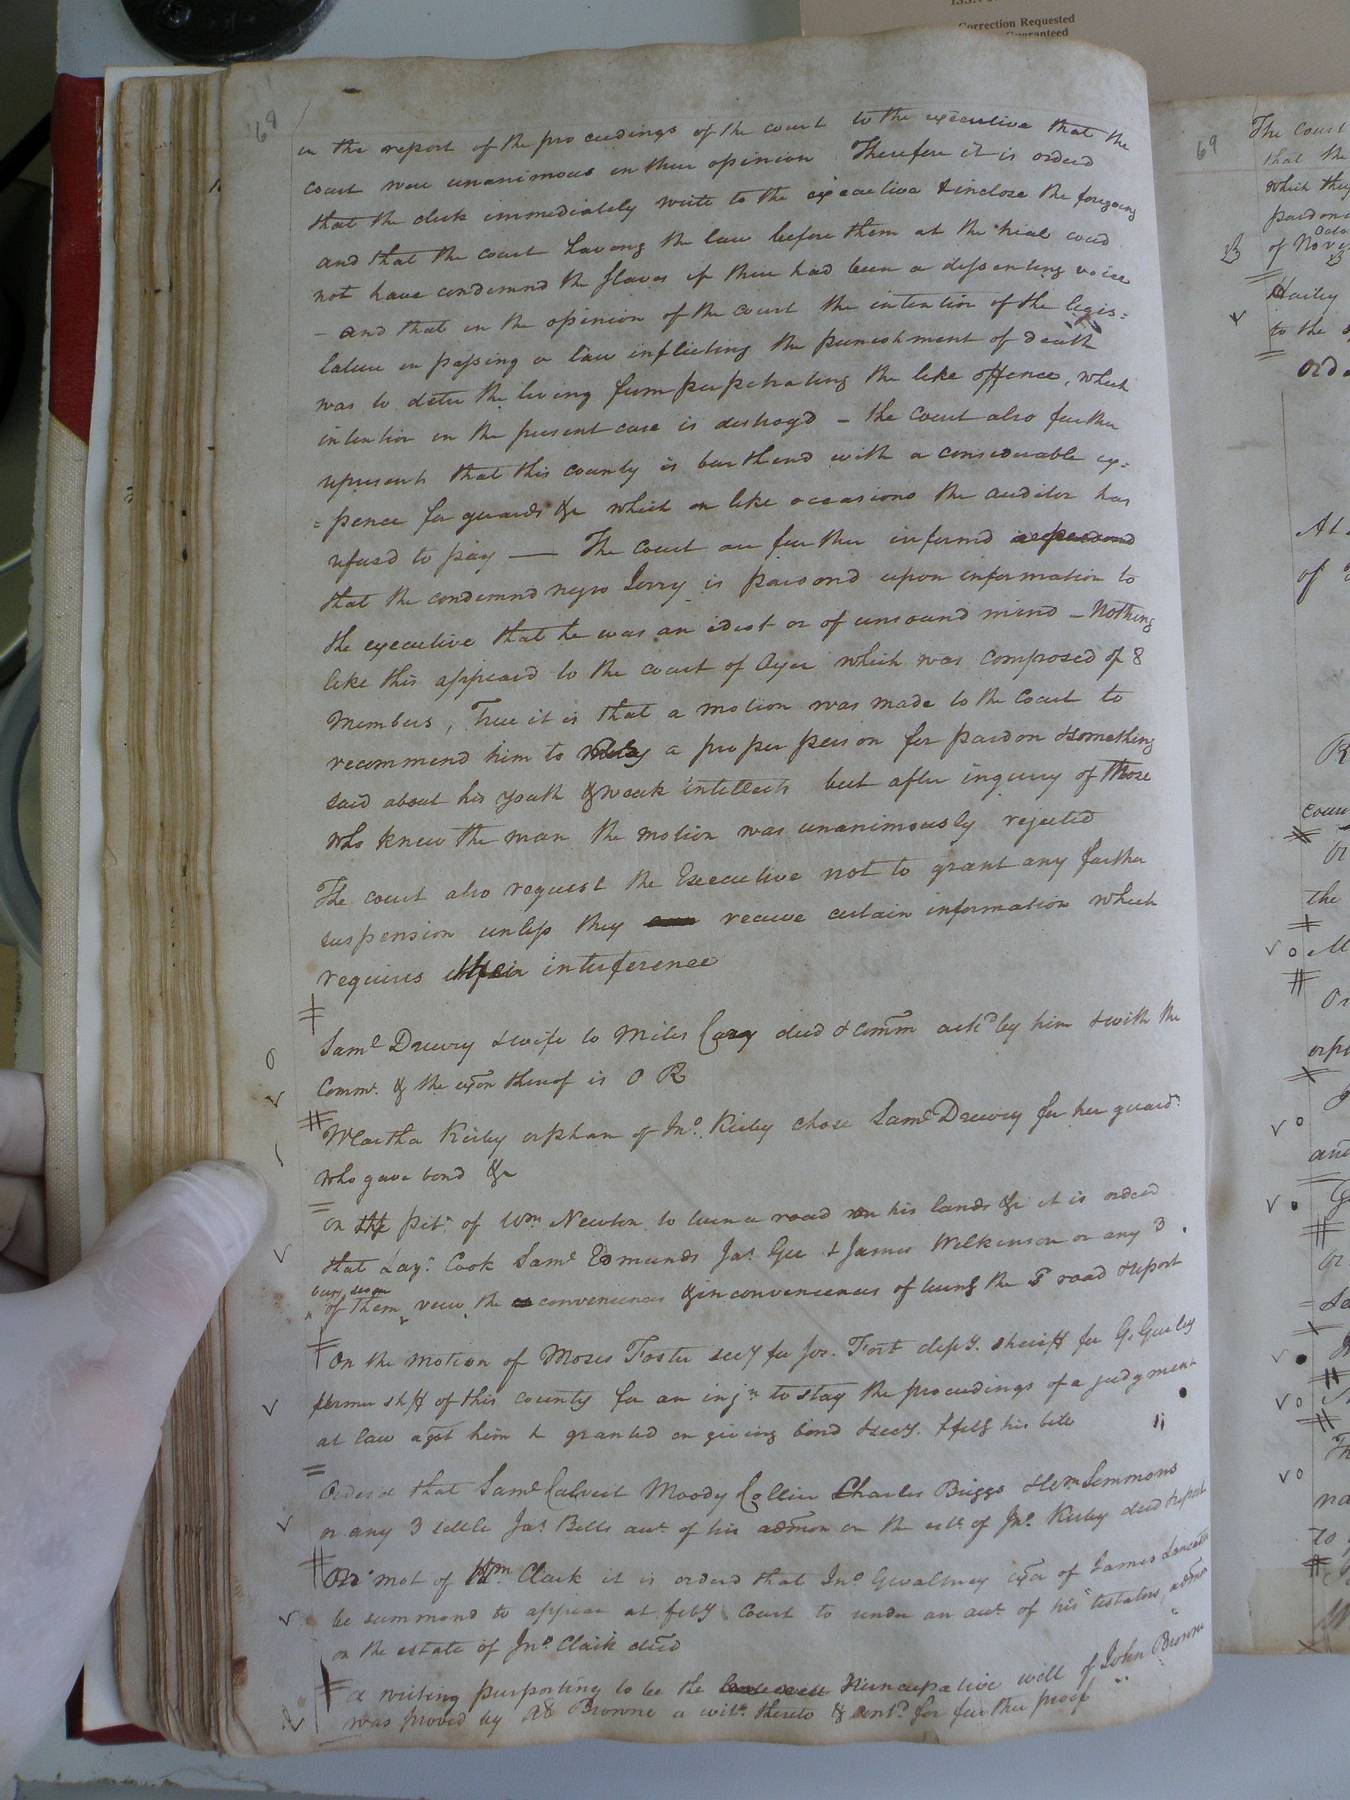 68
in the report of the proceedings of the court to the executive that the
court were unanimous in their opinion Therefore it is orderd
that the clerk immediately write to the executive & inclose the foregoing
and that the court having the law before them at the trial coud
not have condemnd the slaves if there had been a dissenting voice
– and that in the opinion of the court the intention of the legis=
lature in passing a law inflicting the punishment of death
was to deter the living from perpetrating the like offence, which
intention in the present case is destroyd – the court also further
represents that this county is burthend with a considerable ex=
=pence for guards &c which on like occasions the auditor has
refused to pay — The court are further informd
that the condemnd negro Jerry is pardond upon information to
the executive that he was an ideot or of unsound mind – Nothing
like this appeard to the court of Oyer which was composed of 8
Members, True it is that a motion was made to the Court to
recommend him to a proper person for pardon & something
said about his youth & weak intellects but after inquiry of those
who knew the man the motion was unanimously rejected
The court also request the Executive not to grant any farther
suspension unless they receive certain information which
requires their interference
Saml Drewry & wife to Miles Cary deed & comm ackd by him & with the
Commn. & the exon thereof is O R
Martha Kirby orphan of Jno. Kirby chose Saml Drewry for her guardn
who gave bond &c
on the petn of Wm Newton to turn a road on his lands &c it is orderd
that Lazs Cook Saml Edmunds Jas Gee & James Wilkinson or any 3
of them, view the conveniences & inconveniences of turng the sd road & report
On the motion of Moses Foster secy for Jos. Fort depy. sheriff for G. Gurley
former shff of this county for an injn to stay the proceedings of a judgment
at law agst him is granted on giving bond & secy. & filg his bill
Orderd that Saml Calvert Moody Collier Charles Briggs & Wm Simmons
or any 3 settle Jas Bells act. of his admon on the este of Jno. Kirby decd & report
On mot of Wm Clark it is orderd that Jno Gwaltney exor of James
be summond to appear at feby Court to render an act. of his testators admon
on the estate of Jno. Clark decd
a writing purporting to be the Nuncupative will of John Browne
was proved by Browne a witn. thereto & contd for further proof
69
The Court
that the
which they
pardon
of Nov
Hailey
to the
Ord
At
of
the
and
Correction Requested
Guaranteed